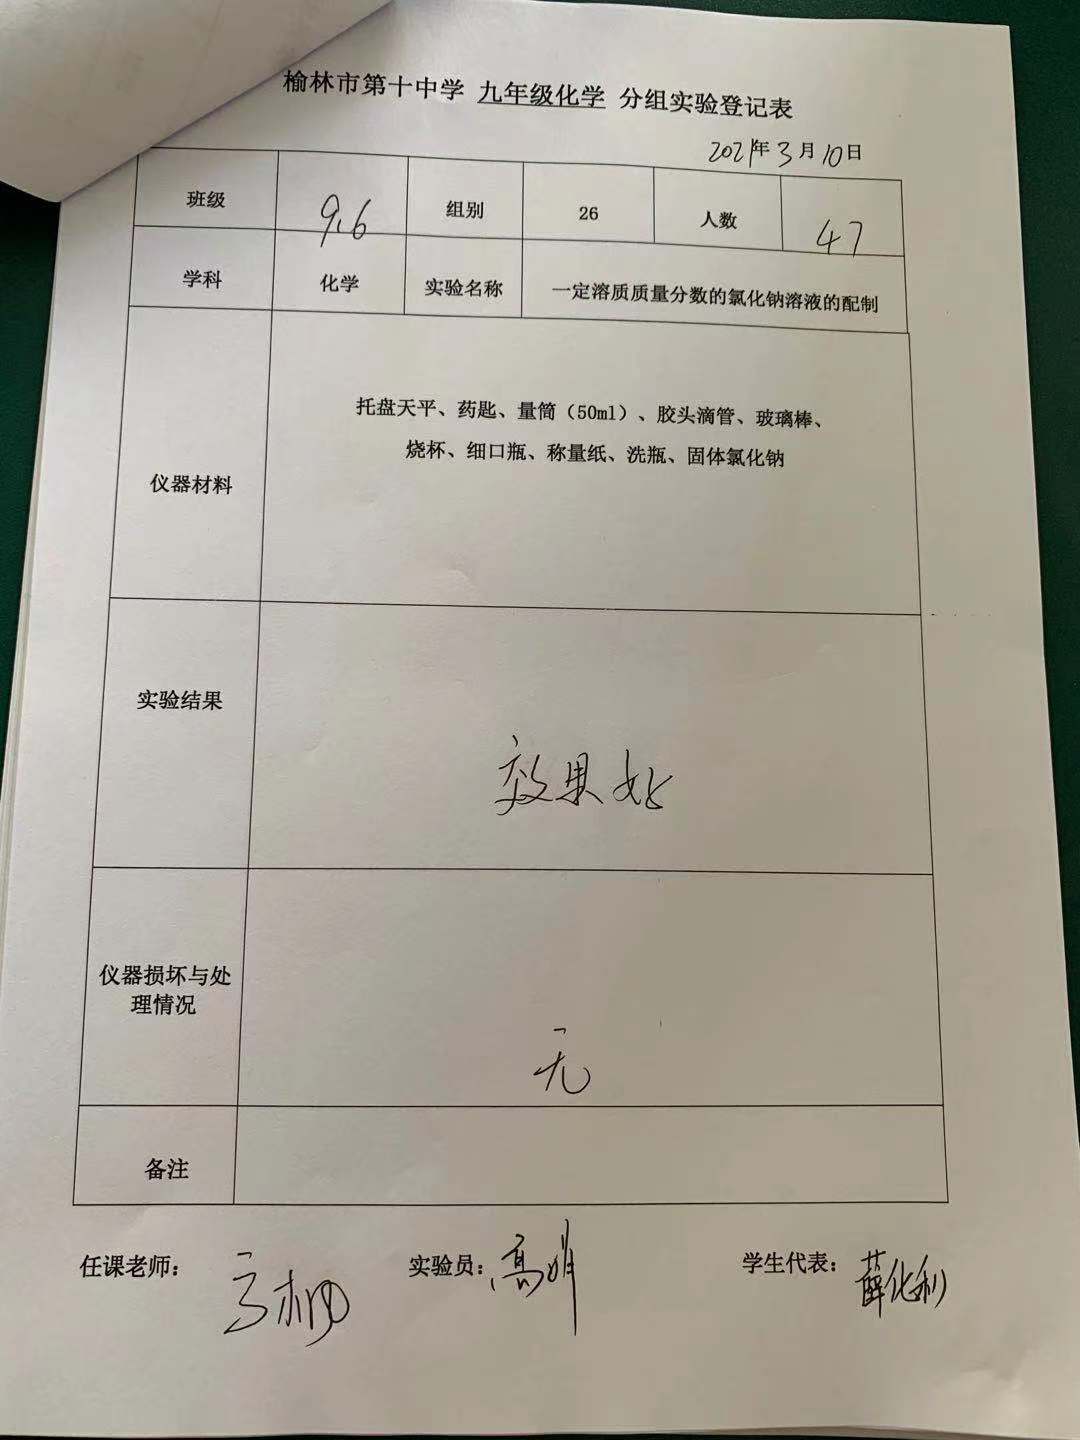 榆林市第十中学 九年级化学 分组实验登记表
2021年3月10日
班级 9.6 组别 26 人数 47
学科 化学 实验名称 一定溶质质量分数的氯化钠溶液的配制
仪器材料
托盘天平、药匙、量筒（50ml）、胶头滴管、玻璃棒、
烧杯、细口瓶、称量纸、洗瓶、固体氯化钠
实验结果
效果好
仪器损坏与处
理情况
无
备注
任课老师： 实验员：高娟 学生代表：薛化利